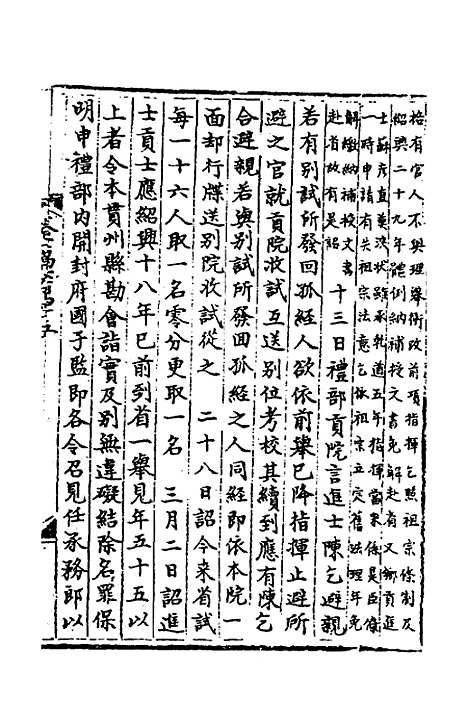 格有官人不與理舉術改前項指揮乞照祖宗條制及
紹興二十九年體例納補授文書免解赴省又鄉貢進
士蘇彥直奏狀雖承乾道五年指揮當來係吳臣僚
一時申請有失祖宗法意乞依祖宗立定舊法理年免
解繳納補授文書
赴省故有是詔　十三日禮部貢院言進士陳乞避親
若有別試所發回孤經人欲依前舉已降指揮止避所
避之官就貢院收試互送別位考校其續到應有陳乞
合避親若與別試所發回孤經之人同經即依本院一
面却行牒送別院收試從之　二十八日詔今來省試
每一十六人取一名零分更取一名　三月二日詔進
士貢士應紹興十八年已前到省一舉見年五十五以
上者令本貫州縣勘會詣實及別無違礙結除名罪保
明申禮部內開封府國子監即各令召見任承務郎以